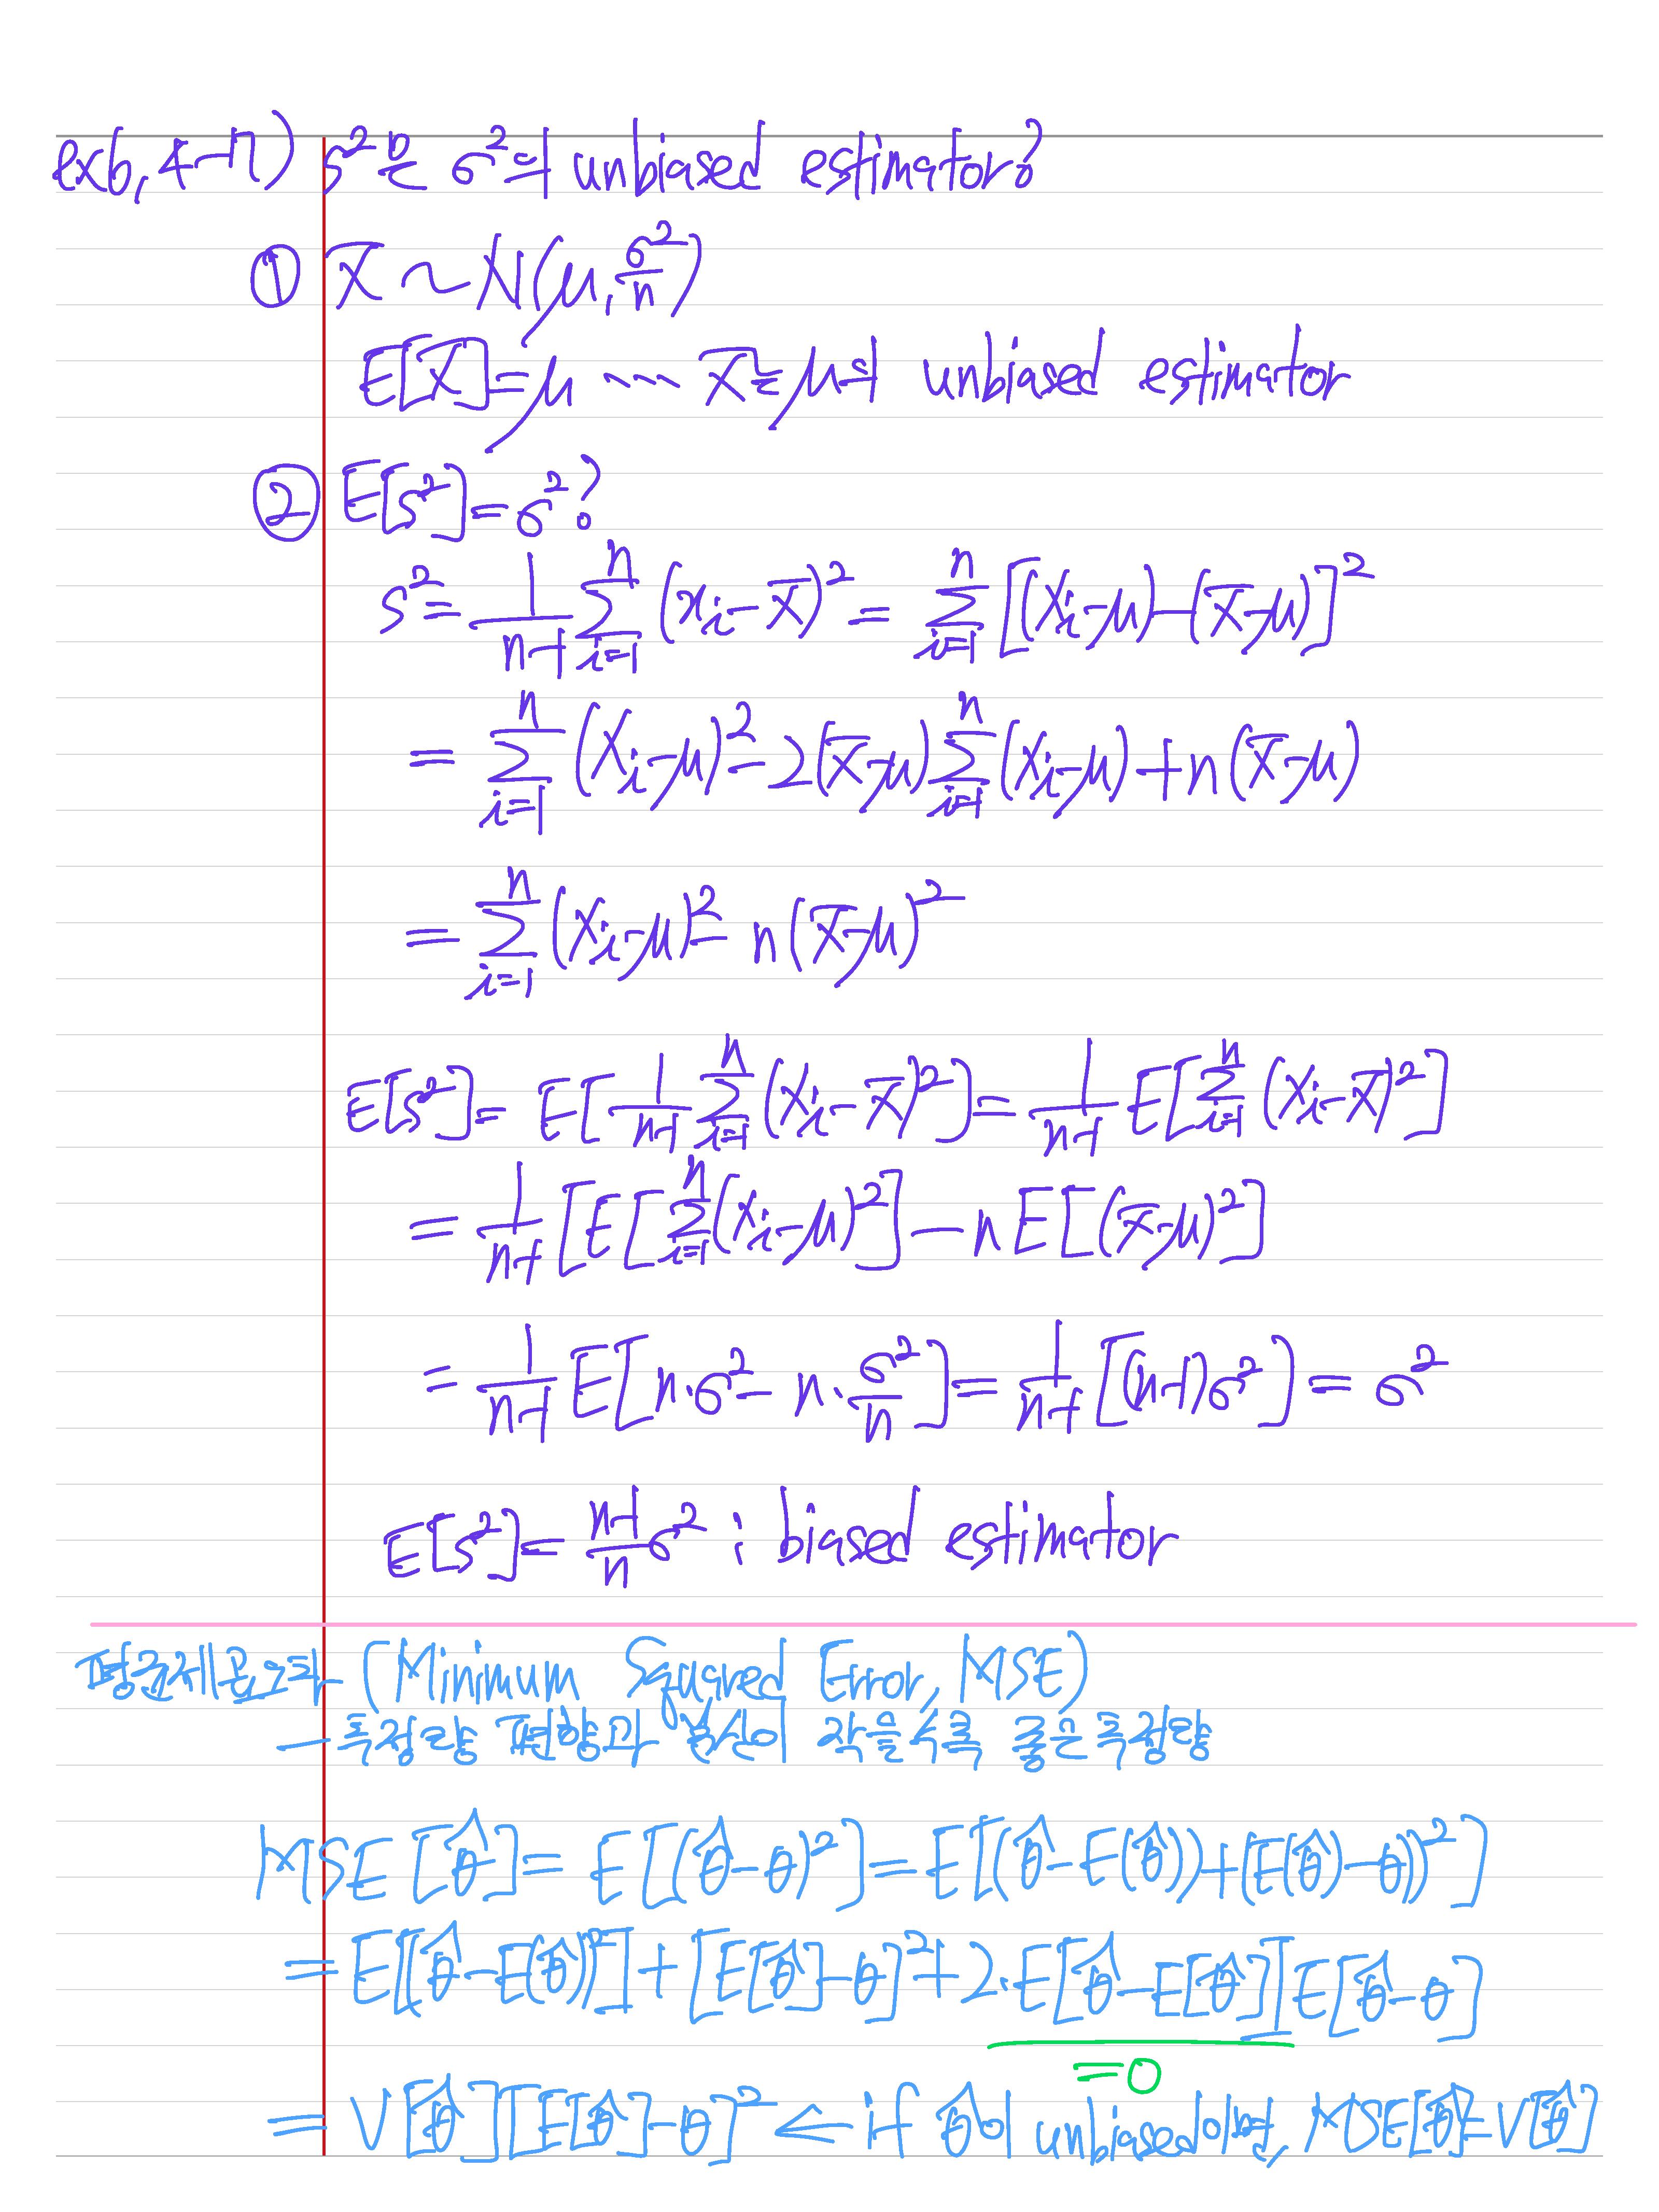 ex6.4-7) s²은 σ²의 unbiased estimator?
① X̄ ~ N(μ, σ²/n)
E[X̄] = μ ⋯ X̄는 μ의 unbiased estimator
② E[s²] = σ²?
s² = 1/(n-1) Σ_{i=1}^{n} (x_i - x̄)² = Σ_{i=1}^{n} [(X_i-μ)-(X̄-μ)]²
= Σ_{i=1}^{n} (X_i-μ)² - 2(X̄-μ) Σ_{i=1}^{n} (X_i-μ) + n(X̄-μ)
= Σ_{i=1}^{n} (X_i-μ)² - n(X̄-μ)²
E[s²] = E[1/(n-1) Σ_{i=1}^{n} (X_i-X̄)²] = 1/(n-1) E[Σ_{i=1}^{n} (X_i-X̄)²]
= 1/(n-1) [E[Σ_{i=1}^{n} (X_i-μ)²] - nE[(X̄-μ)²]
= 1/(n-1) E[n·σ² - n·σ²/n] = 1/(n-1) [(n-1)σ²] = σ²
E[s²] = (n-1)/n σ² : biased estimator
평균제곱오차 (Minimum Squared Error, MSE)
— 추정량 편향과 분산이 작을수록 좋은 추정량
MSE[θ̂] = E[(θ̂-θ)²] = E[(θ̂-E(θ̂))+(E(θ̂)-θ))²]
= E[(θ̂-E(θ̂))²] + [E[θ̂]-θ]² + 2·E[θ̂-E[θ̂]]E[θ̂-θ]
=0
= V[θ̂][E[θ̂]-θ]² ← if θ̂이 unbiased이면, MSE[θ̂]=V[θ̂]